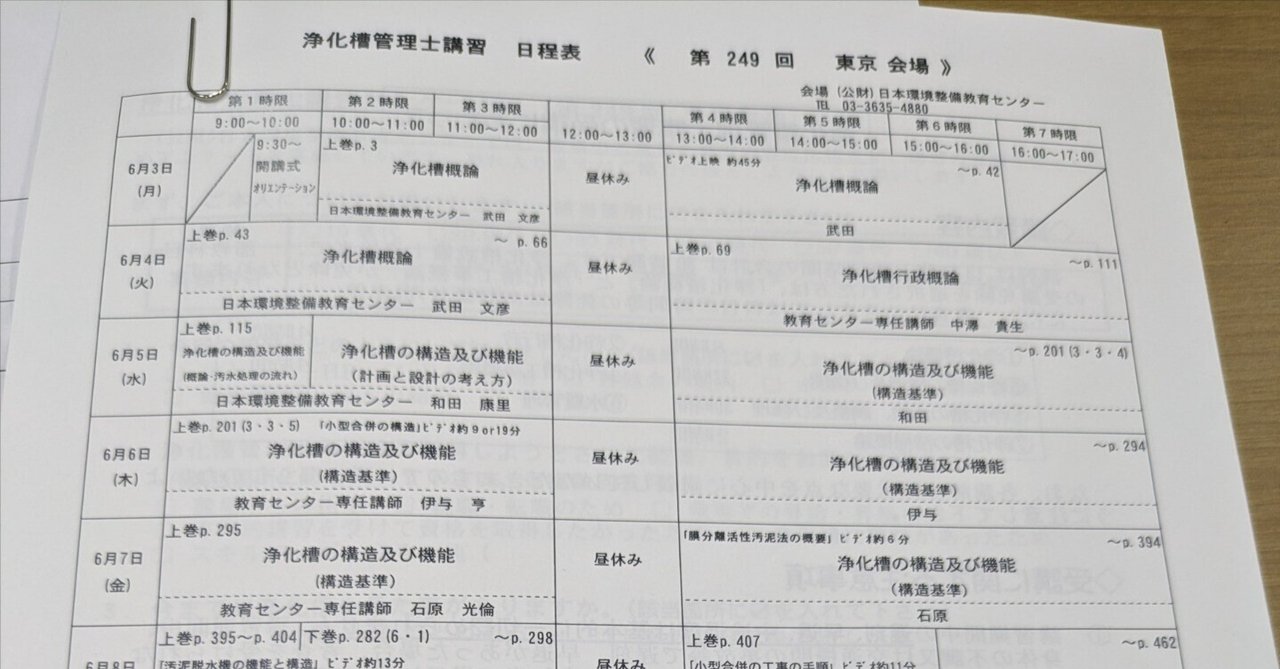 浄化槽管理士講習 日程表 《 第 249 回 東京 会場 》
会場 (公財)日本環境整備教育センター
TEL 03-3635-4880
第1時限 第2時限 第3時限 第4時限 第5時限 第6時限 第7時限
9:00~10:00 10:00~11:00 11:00~12:00 12:00~13:00 13:00~14:00 14:00~15:00 15:00~16:00 16:00~17:00
6月3日
(月)
9:30~
開講式
オリエンテーション
上巻p. 3
浄化槽概論
日本環境整備教育センター 武田 文彦
昼休み
ビデオ上映 約45分 ~p. 42
浄化槽概論
武田
6月4日
(火)
上巻p. 43 ~ p. 66
浄化槽概論
日本環境整備教育センター 武田 文彦
昼休み
上巻p. 69 ~p. 111
浄化槽行政概論
教育センター専任講師 中澤 貴生
6月5日
(水)
上巻p. 115
浄化槽の構造及び機能
(概論・汚水処理の流れ)
浄化槽の構造及び機能
(計画と設計の考え方)
日本環境整備教育センター 和田 康里
昼休み
~p. 201(3・3・4)
浄化槽の構造及び機能
(構造基準)
和田
6月6日
(木)
上巻p. 201(3・3・5) 「小型合併の構造」ビデオ約9or19分
浄化槽の構造及び機能
(構造基準)
教育センター専任講師 伊与 亨
昼休み
~p. 294
浄化槽の構造及び機能
(構造基準)
伊与
6月7日
(金)
上巻p. 295
浄化槽の構造及び機能
(構造基準)
教育センター専任講師 石原 光倫
昼休み
「膜分離活性汚泥法の概要」ビデオ約6分 ~p. 394
浄化槽の構造及び機能
(構造基準)
石原
6月8日
上巻p. 395~p. 404 下巻p. 282(6・1) ~p. 298
「汚泥脱水機の機能と構造」ビデオ約13分
上巻p. 407 ~p. 462
「小型合併の工事の手順」ビデオ約11分